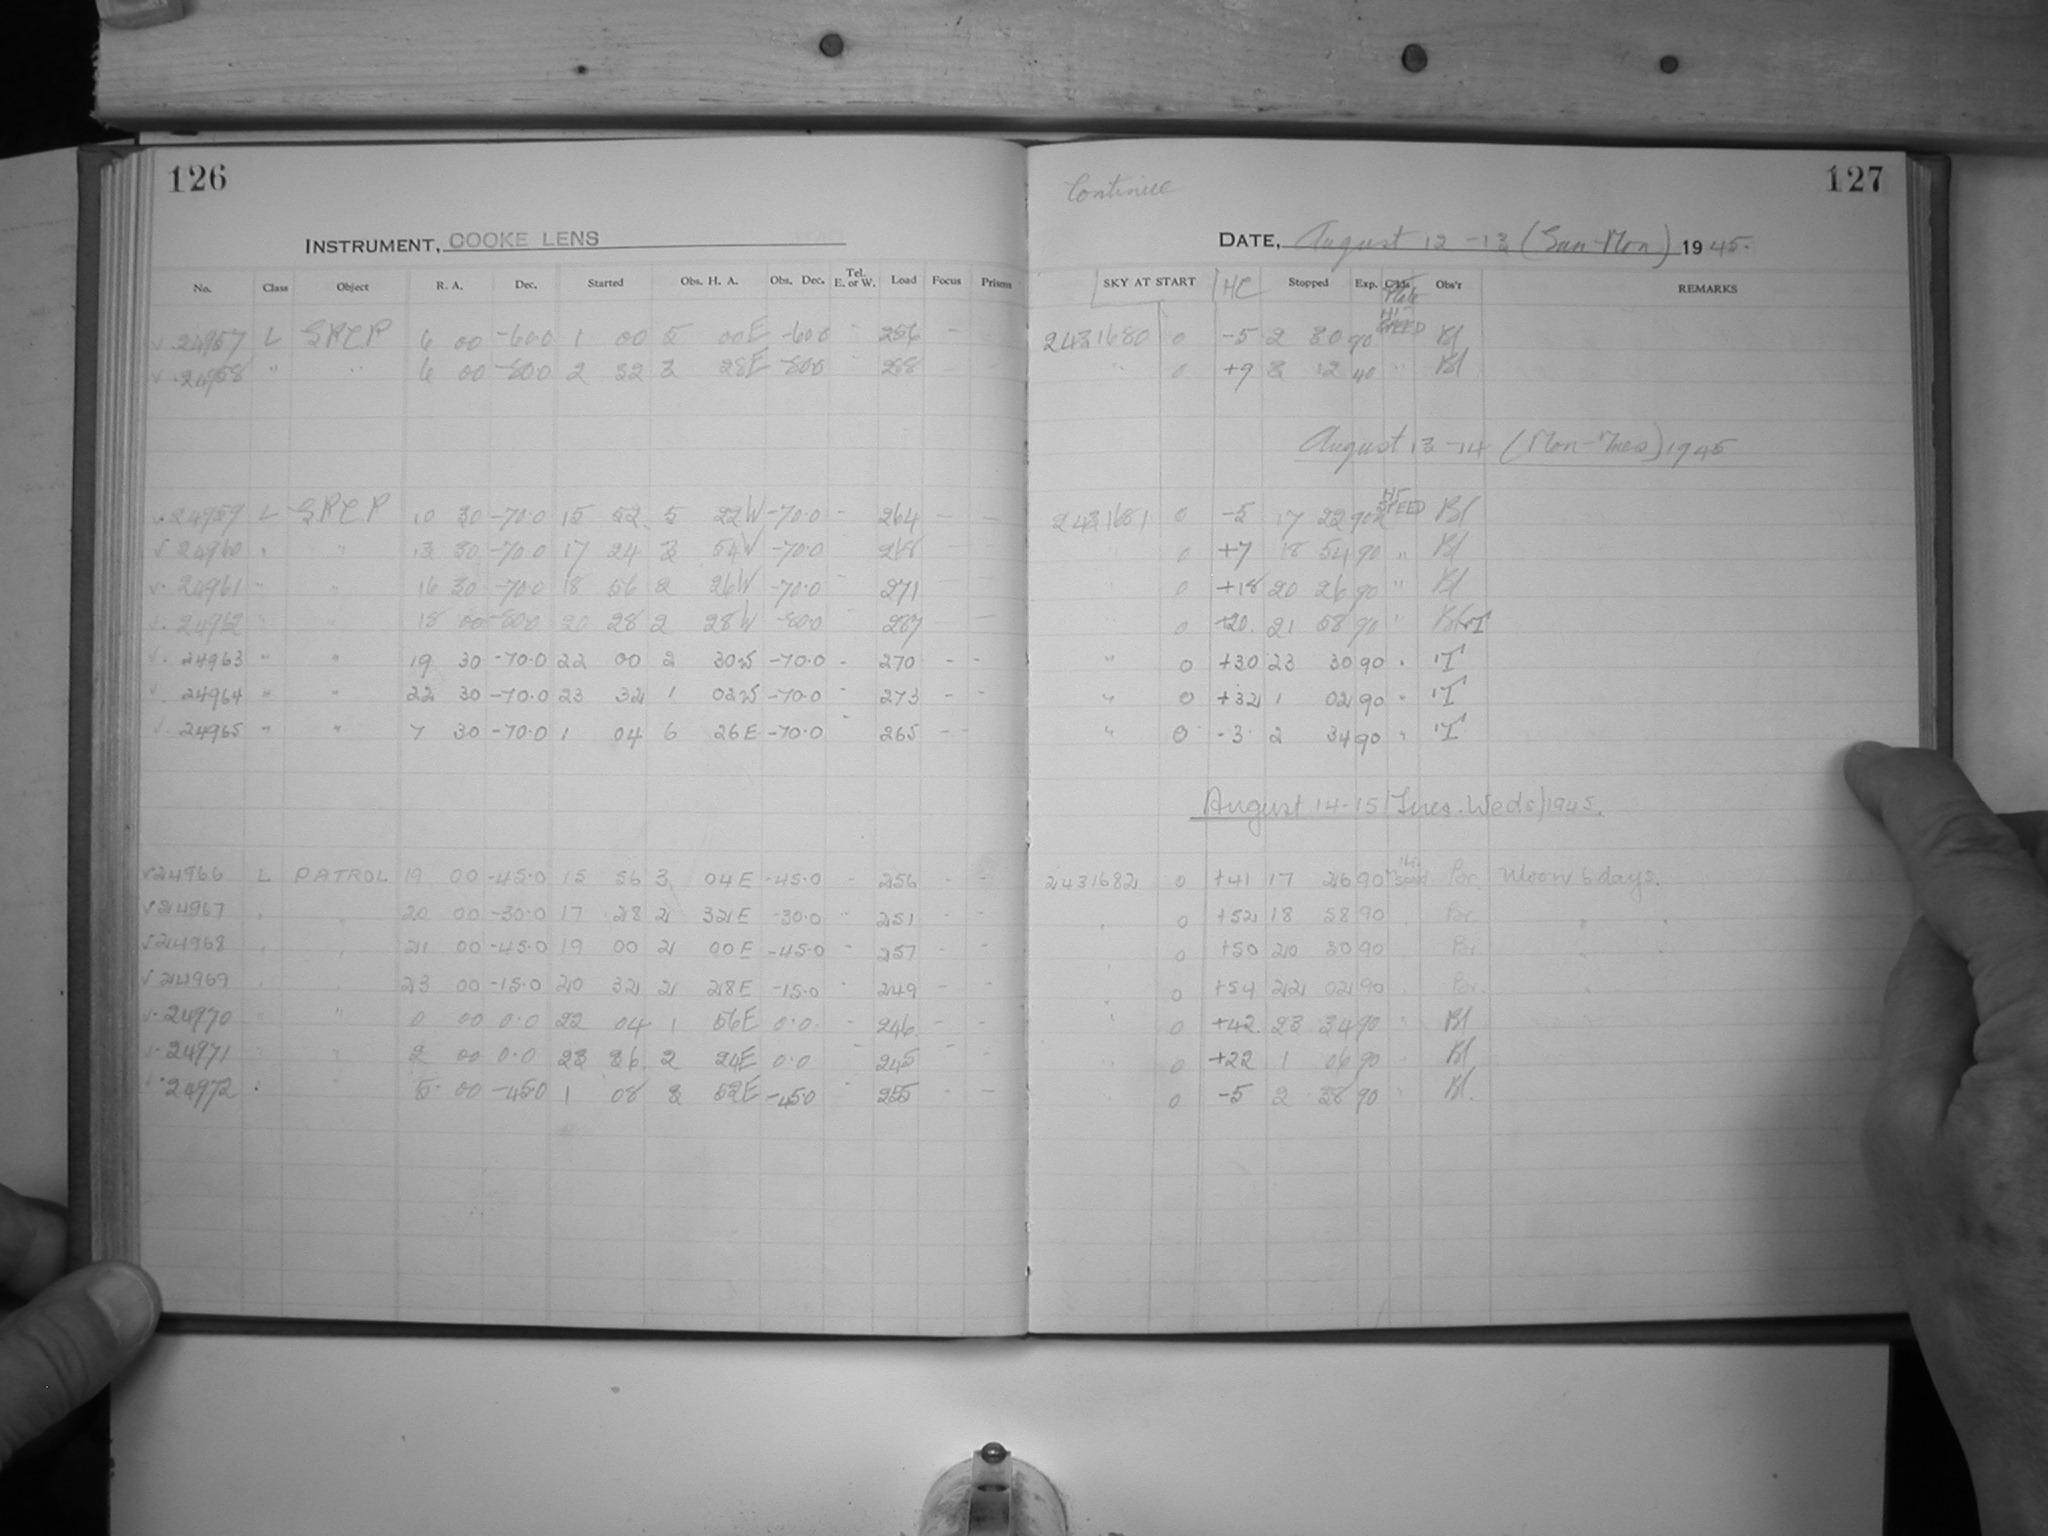 126
INSTRUMENT, COOKE LENS
No. Class Object R. A. Dec. Started Obs. H. A. Obs. Dec. Tel. E. or W. Load Focus Prisms
√ 24957 L SPCP 6 00 -60.0 1 00 5 00E -60.0 - 256 - -
√ 24958 " " 6 00 -80.0 2 32 3 28E -80.0 288 - -
√ 24959 L SPCP 10 30 -70.0 15 52 5 22W -70.0 - 264 - -
√ 24960 " " 13 30 -70.0 17 24 3 54W -70.0 - 268 - -
√ 24961 " " 16 30 -70.0 18 56 2 26W -70.0 - 271 - -
√ 24962 " " 18 00 -80.0 20 28 2 28W -80.0 287 - -
√ 24963 " " 19 30 -70.0 22 00 2 30W -70.0 - 270 - -
√ 24964 " " 22 30 -70.0 23 32 1 02W -70.0 - 273 - -
√ 24965 " " 7 30 -70.0 1 04 6 26E -70.0 - 265 - -
√ 24966 L PATROL 19 00 -45.0 15 56 3 04E -45.0 - 256 - -
√ 24967 " " 20 00 -30.0 17 28 2 32E -30.0 - 251 - -
√ 24968 " " 21 00 -45.0 19 00 2 00E -45.0 - 257 - -
√ 24969 " " 23 00 -15.0 20 32 2 28E -15.0 - 249 - -
√ 24970 " " 0 00 0.0 22 04 1 56E 0.0 - 246 - -
√ 24971 " " 2 00 0.0 23 36 2 24E 0.0 - 245 - -
√ 24972 " " 5 00 -45.0 1 08 3 52E -45.0 - 255 - -
Continue
127
DATE, August 12-13 (Sun-Mon) 1945.
SKY AT START HC Stopped Exp. Plate Obs'r REMARKS
2431680 0 -5 2 30 90 HI-SPEED Bl
" 0 +9 3 12 40 " Bl
August 13-14 (Mon-Tues) 1945
2431681 0 -5 17 22 90 HI SPEED Bl
0 +7 18 54 90 " Bl
0 +18 20 26 90 " Bl
0 +20. 21 58 90 "
" 0 +30 23 30 90 "
" 0 +32 1 02 90 "
" 0 -3 2 34 90 "
August 14-15 (Tues.-Weds) 1945.
2431682 0 +41 17 26 90 Br. Moon 6 days.
" 0 +52 18 58 90 " Br. "
" 0 +50 20 30 90 " Br. "
" 0 +54 22 02 90 " Br. "
" 0 +42 23 34 90 " Bl
" 0 +22 1 06 90 " Bl
" 0 -5 2 38 90 " Bl.